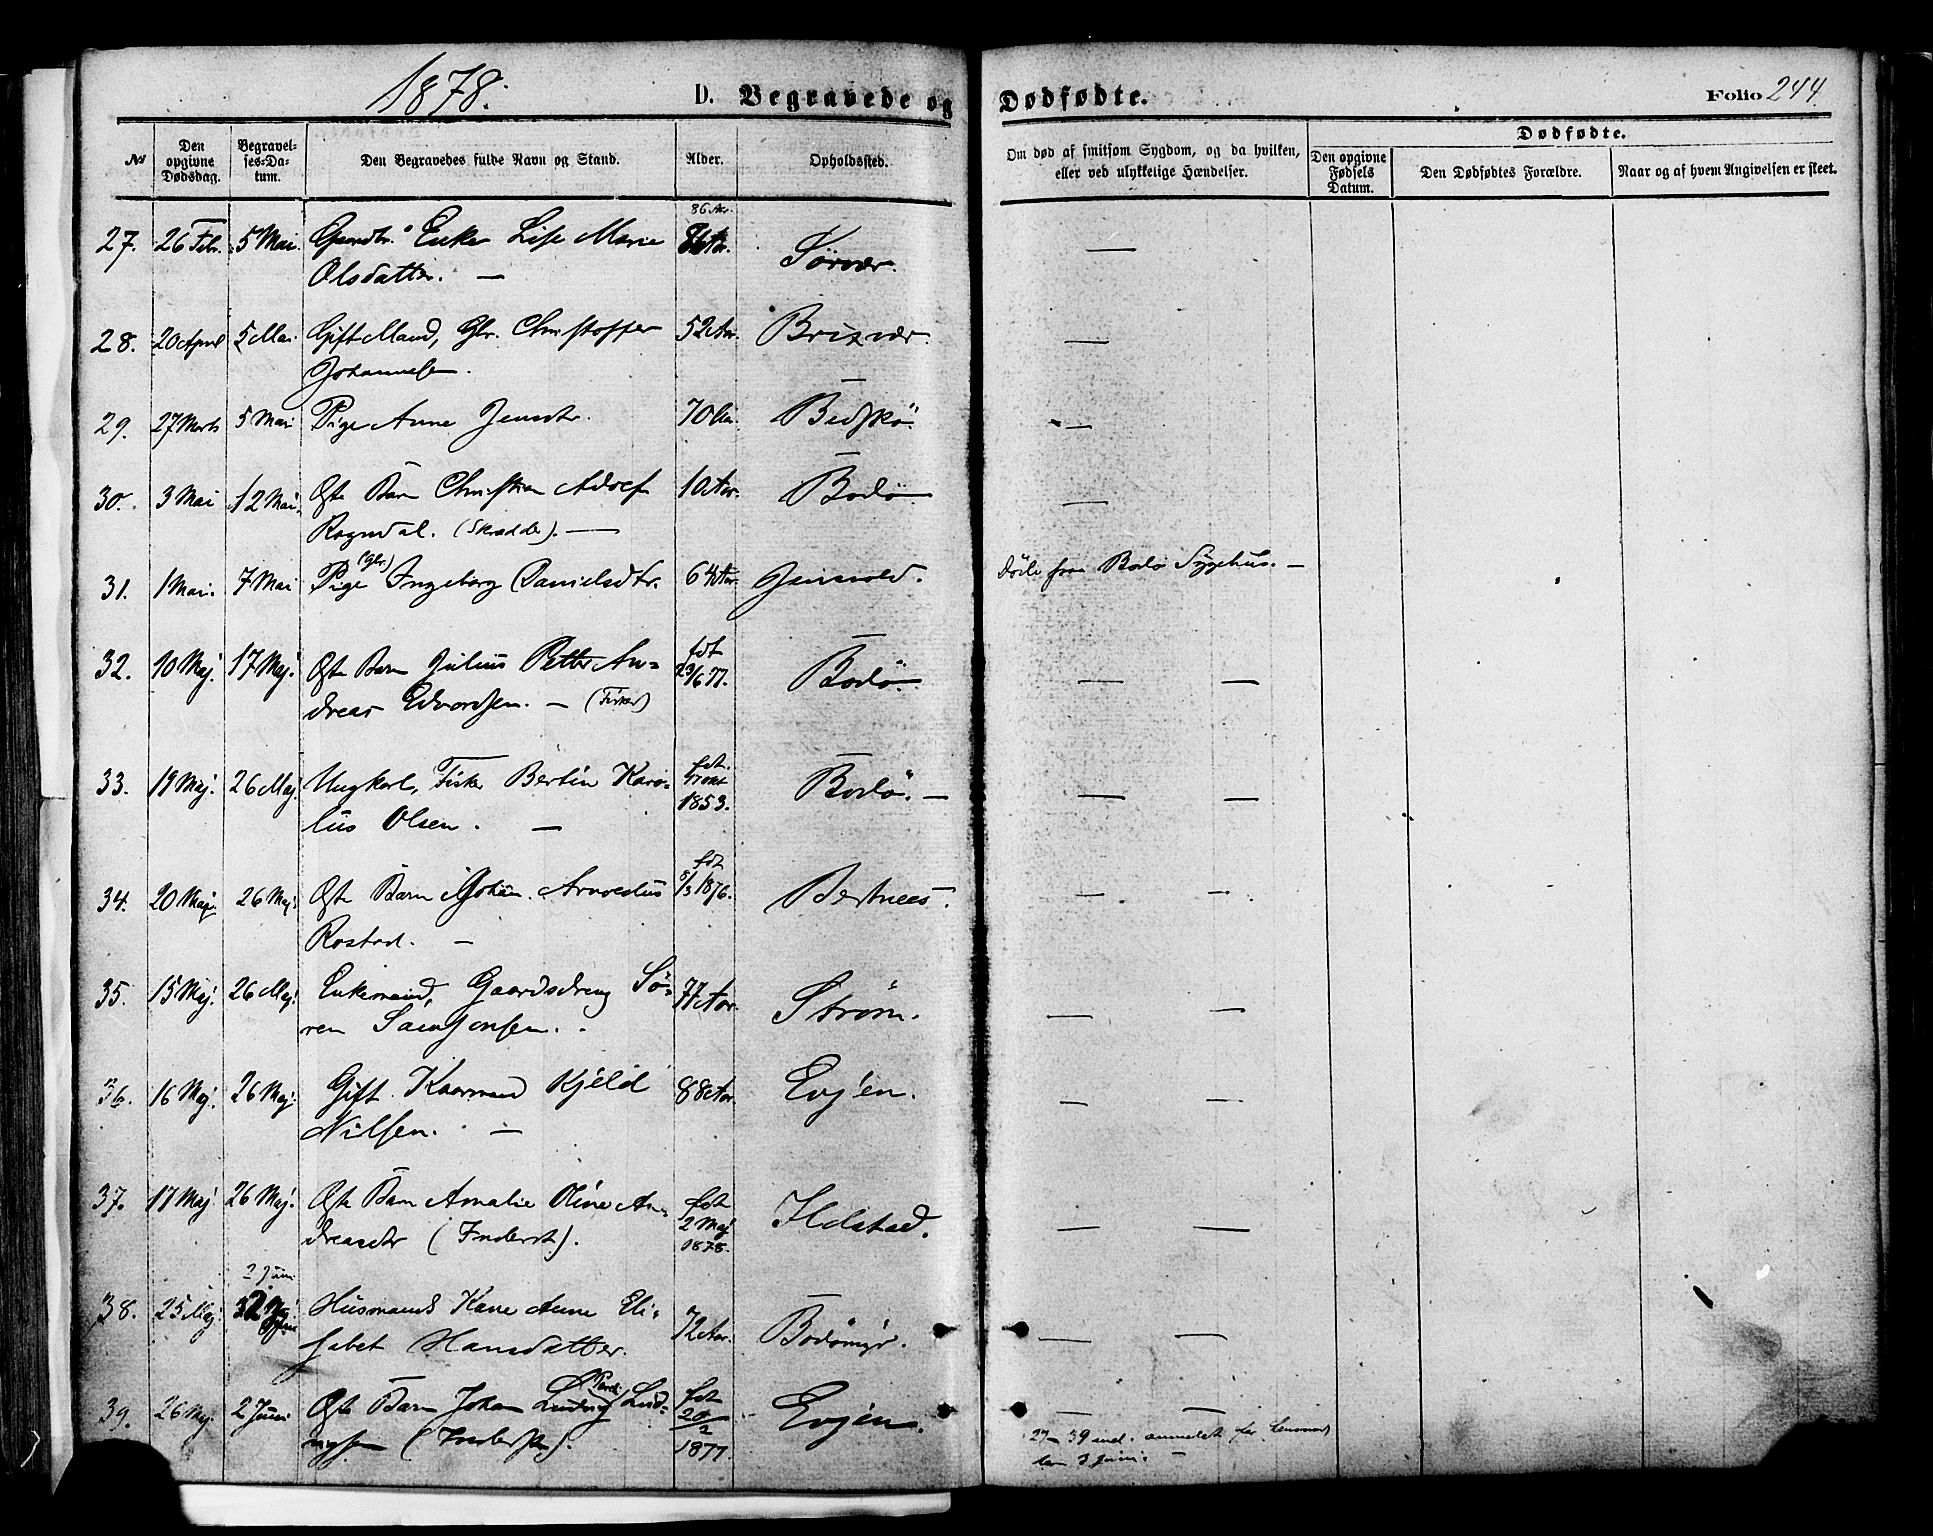 1878.
D. Begravede og Dødfødte.
Folio 244.
№
Den opgivne Dødsdag.
Begravelses-Datum.
Den Begravedes fulde Navn og Stand.
Alder.
Opholdssted.
Om død af smitsom Sygdom, og da hvilken, eller ved ulykkelige Hændelser.
Dødfødte.
Den opgivne Fødsels Datum.
Den Dødfødtes Forældre.
Naar og af hvem Angivelsen er skeet.
27. 26 Febr. 5 Mai Enke Lise Marie 86 Aar. Sørvær. —
Olsdatter. —
28. 20 April 5 Mai Gift Mand, Gbr. Christoffer 52 Aar. Brixvær. —
Johannesen.
29. 27 Marts 5 Mai Pige Anne Jensdtr. 70 Aar. —
30. 3 Mai 12 Mai. Ægte Barn Christian Adolf 10 Aar. Bodø —
Rogndal. (Skrædder). —
31. 1 Mai. 7 Mai Pige (Gbr.) Ingeborg Danielsdtr. 64 Aar. Jensvold. fra Bodø Sygehus. —
32. 10 Maj. 17 Maj. Ægte Barn Julius Petter An- fdt 23/6 77. Bodø. — —
dreas Edvardsen. — (Fisker)
33. 19 Maj. 26 Maj. Ungkarl, Fisker Bertin Karo- fdt. 1853. Bodø. — — —
lus Olsen. —
34. 20 Maj. 26 Maj. Ægte Barn Johan Arnoldus fdt 8/3 1876. Bertnes. — —
Rostad. —
35. 15 Maj. 26 Maj. Enkemand, Gaardsdreng Sø- 77 Aar. Strøm. — —
ren Samsonsen.
36. 16 Maj. 26 Maj. Gift Kaarmand Kjeld 88 Aar. Evjen. — —
Nilsen. —
37. 17 Maj. 26 Maj. Ægte Barn Amalie Oline An- fdt 2 Maj 1878. Ildstad. — —
dreasdtr (Inderst).
38. 25 Maj. 2 Juni Husmands Kone Anne Eli- 72 Aar. Bodømyr. — —
sabet Hansdatter.
39. 26 Maj. 2 Juni Ægte Barn Johan Ludvig Lud- fdt 20/2 1877. Evjen. — —
vigsen
27-39 incl. anmeldt for Lensmand
den 3 Juni. —